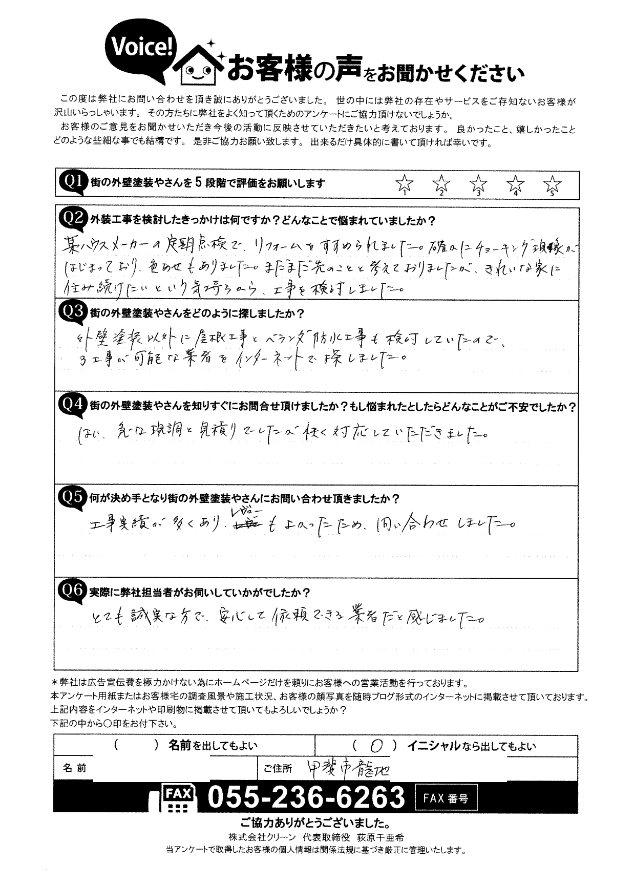 Voice!
お客様の声をお聞かせください
この度は弊社にお問い合わせを頂き誠にありがとうございました。 世の中には弊社の存在やサービスをご存知ないお客様が
沢山いらっしゃいます。 その方たちに弊社をよく知って頂くためのアンケートにご協力頂けないでしょうか。
お客様のご意見をお聞かせいただき今後の活動に反映させていただきたいと考えております。 良かったこと、嬉しかったこと
どのような些細な事でも結構です。 是非ご協力お願い致します。 出来るだけ具体的に書いて頂ければ幸いです。
Q1 街の外壁塗装やさんを5段階で評価をお願いします ☆1 ☆2 ☆3 ☆4 ☆5
Q2 外装工事を検討したきっかけは何ですか？どんなことで悩まれていましたか？
某ハウスメーカーの定期点検で、リフォームをすすめられました。確かにチョーキング現象が
はじまっており、色あせもありました。まだまだ先のことと考えておりましたが、きれいな家に
住み続けたいという気持ちから、工事を検討しました。
Q3 街の外壁塗装やさんをどのように探しましたか？
外壁塗装以外に屋根工事とベランダ防水工事も検討していたので、
3工事が可能な業者をインターネットで探しました。
Q4 街の外壁塗装やさんを知りすぐにお問合せ頂けましたか？もし悩まれたとしたらどんなことがご不安でしたか？
はい、急な現調と見積りでしたが快く対応していただきました。
Q5 何が決め手となり街の外壁塗装やさんにお問い合わせ頂きましたか？
工事実績が多くあり、レビューもよかったため、問い合わせしました。
Q6 実際に弊社担当者がお伺いしていかがでしたか？
とても誠実な方で、安心して依頼できる業者だと感じました。
＊弊社は広告宣伝費を極力かけない為にホームページだけを頼りにお客様への営業活動を行っております。
本アンケート用紙またはお客様宅の調査風景や施工状況、お客様の顔写真を随時ブログ形式のインターネットに掲載させて頂いております。
上記内容をインターネットや印刷物に掲載させて頂いてもよろしいでしょうか？
下記の中から〇印をお付下さい。
（　　）名前を出してもよい （ 〇 ）イニシャルなら出してもよい
名前 ご住所 甲斐市龍地
FAX 055-236-6263 FAX 番号
ご協力ありがとうございました。
株式会社クリーン 代表取締役 荻原千亜希
当アンケートで取得したお客様の個人情報は関係法規に基づき厳正に管理いたします。